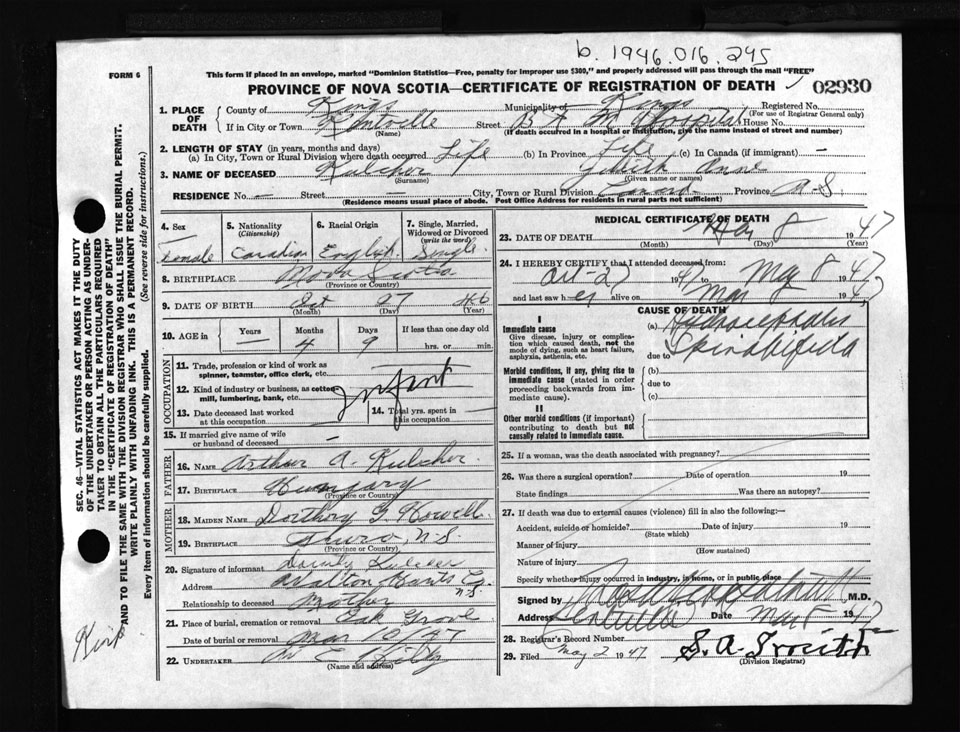 b. 1946.016.245
FORM 6
This form if placed in an envelope, marked "Dominion Statistics—Free, penalty for improper use $300," and properly addressed will pass through the mail "FREE"
PROVINCE OF NOVA SCOTIA—CERTIFICATE OF REGISTRATION OF DEATH 02930
1. PLACE OF DEATH
County of Kings Municipality of Kings Registered No.
(For use of Registrar General only)
If in City or Town Kentville Street B F M Hospital House No.
(Name) (If death occurred in a hospital or institution, give the name instead of street and number)
2. LENGTH OF STAY (in years, months and days)
(a) In City, Town or Rural Division where death occurred Life (b) In Province Life (c) In Canada (if immigrant) —
3. NAME OF DECEASED Kulcher Judith Ann
(Surname) (Given name or names)
RESIDENCE No. — Street City, Town or Rural Division Province N.S.
(Residence means usual place of abode. Post Office Address for residents in rural parts not sufficient)
4. Sex
Female
5. Nationality
(Citizenship)
Canadian
6. Racial Origin
English
7. Single, Married, Widowed or Divorced
(write the word)
Single
8. BIRTHPLACE Nova Scotia
(Province or Country)
9. DATE OF BIRTH Oct 27 46
(Month) (Day) (Year)
10. AGE in
Years Months Days If less than one day old
— 4 9 hrs. or min.
OCCUPATION
11. Trade, profession or kind of work as spinner, teamster, office clerk, etc.
12. Kind of industry or business, as cotton mill, lumbering, bank, etc.
Infant
13. Date deceased last worked at this occupation
14. Total yrs. spent in this occupation —
15. If married give name of wife or husband of deceased —
FATHER
16. NAME Arthur A. Kulcher
17. BIRTHPLACE Hungary
(Province or Country)
MOTHER
18. MAIDEN NAME Dorthory G. Howell
19. BIRTHPLACE Truro, N.S.
(Province or Country)
20. Signature of informant
Address Walton Hants Co. N.S.
Relationship to deceased Mother
21. Place of burial, cremation or removal Oak Grove
Date of burial or removal Mar 10/47
22. UNDERTAKER W E Hiltz
(Name and address)
MEDICAL CERTIFICATE OF DEATH
23. DATE OF DEATH May 8 1947
(Month) (Day) (Year)
24. I HEREBY CERTIFY that I attended deceased from:
Oct-27 19 to May 8 1947
and last saw her alive on Mar 8 1947
CAUSE OF DEATH
I
Immediate cause
Give disease, injury or complication which caused death, not the mode of dying, such as heart failure, asphyxia, asthenia, etc.
(a) Hydrocephalis
due to Spina bifida
Morbid conditions, if any, giving rise to immediate cause (stated in order proceeding backwards from immediate cause).
(b)
due to
(c)
II
Other morbid conditions (if important) contributing to death but not causally related to immediate cause.
25. If a woman, was the death associated with pregnancy?
26. Was there a surgical operation? Date of operation 19
State findings Was there an autopsy?
27. If death was due to external causes (violence) fill in also the following:—
Accident, suicide or homicide? Date of injury 19
(State which)
Manner of injury
(How sustained)
Nature of injury
Specify whether injury occurred in industry, in home, or in public place
Signed by M.D.
Address Kentville Date Mar 8 1947
28. Registrar's Record Number
29. Filed May 2 1947 S. A.
(Division Registrar)
SEC. 46—VITAL STATISTICS ACT MAKES IT THE DUTY OF THE UNDERTAKER OR PERSON ACTING AS UNDERTAKER TO OBTAIN ALL THE PARTICULARS REQUIRED IN THE "CERTIFICATE OF REGISTRATION OF DEATH" AND TO FILE THE SAME WITH THE DIVISION REGISTRAR WHO SHALL ISSUE THE BURIAL PERMIT.
WRITE PLAINLY WITH UNFADING INK. THIS IS A PERMANENT RECORD.
Every item of information should be carefully supplied. (See reverse side for instructions.)